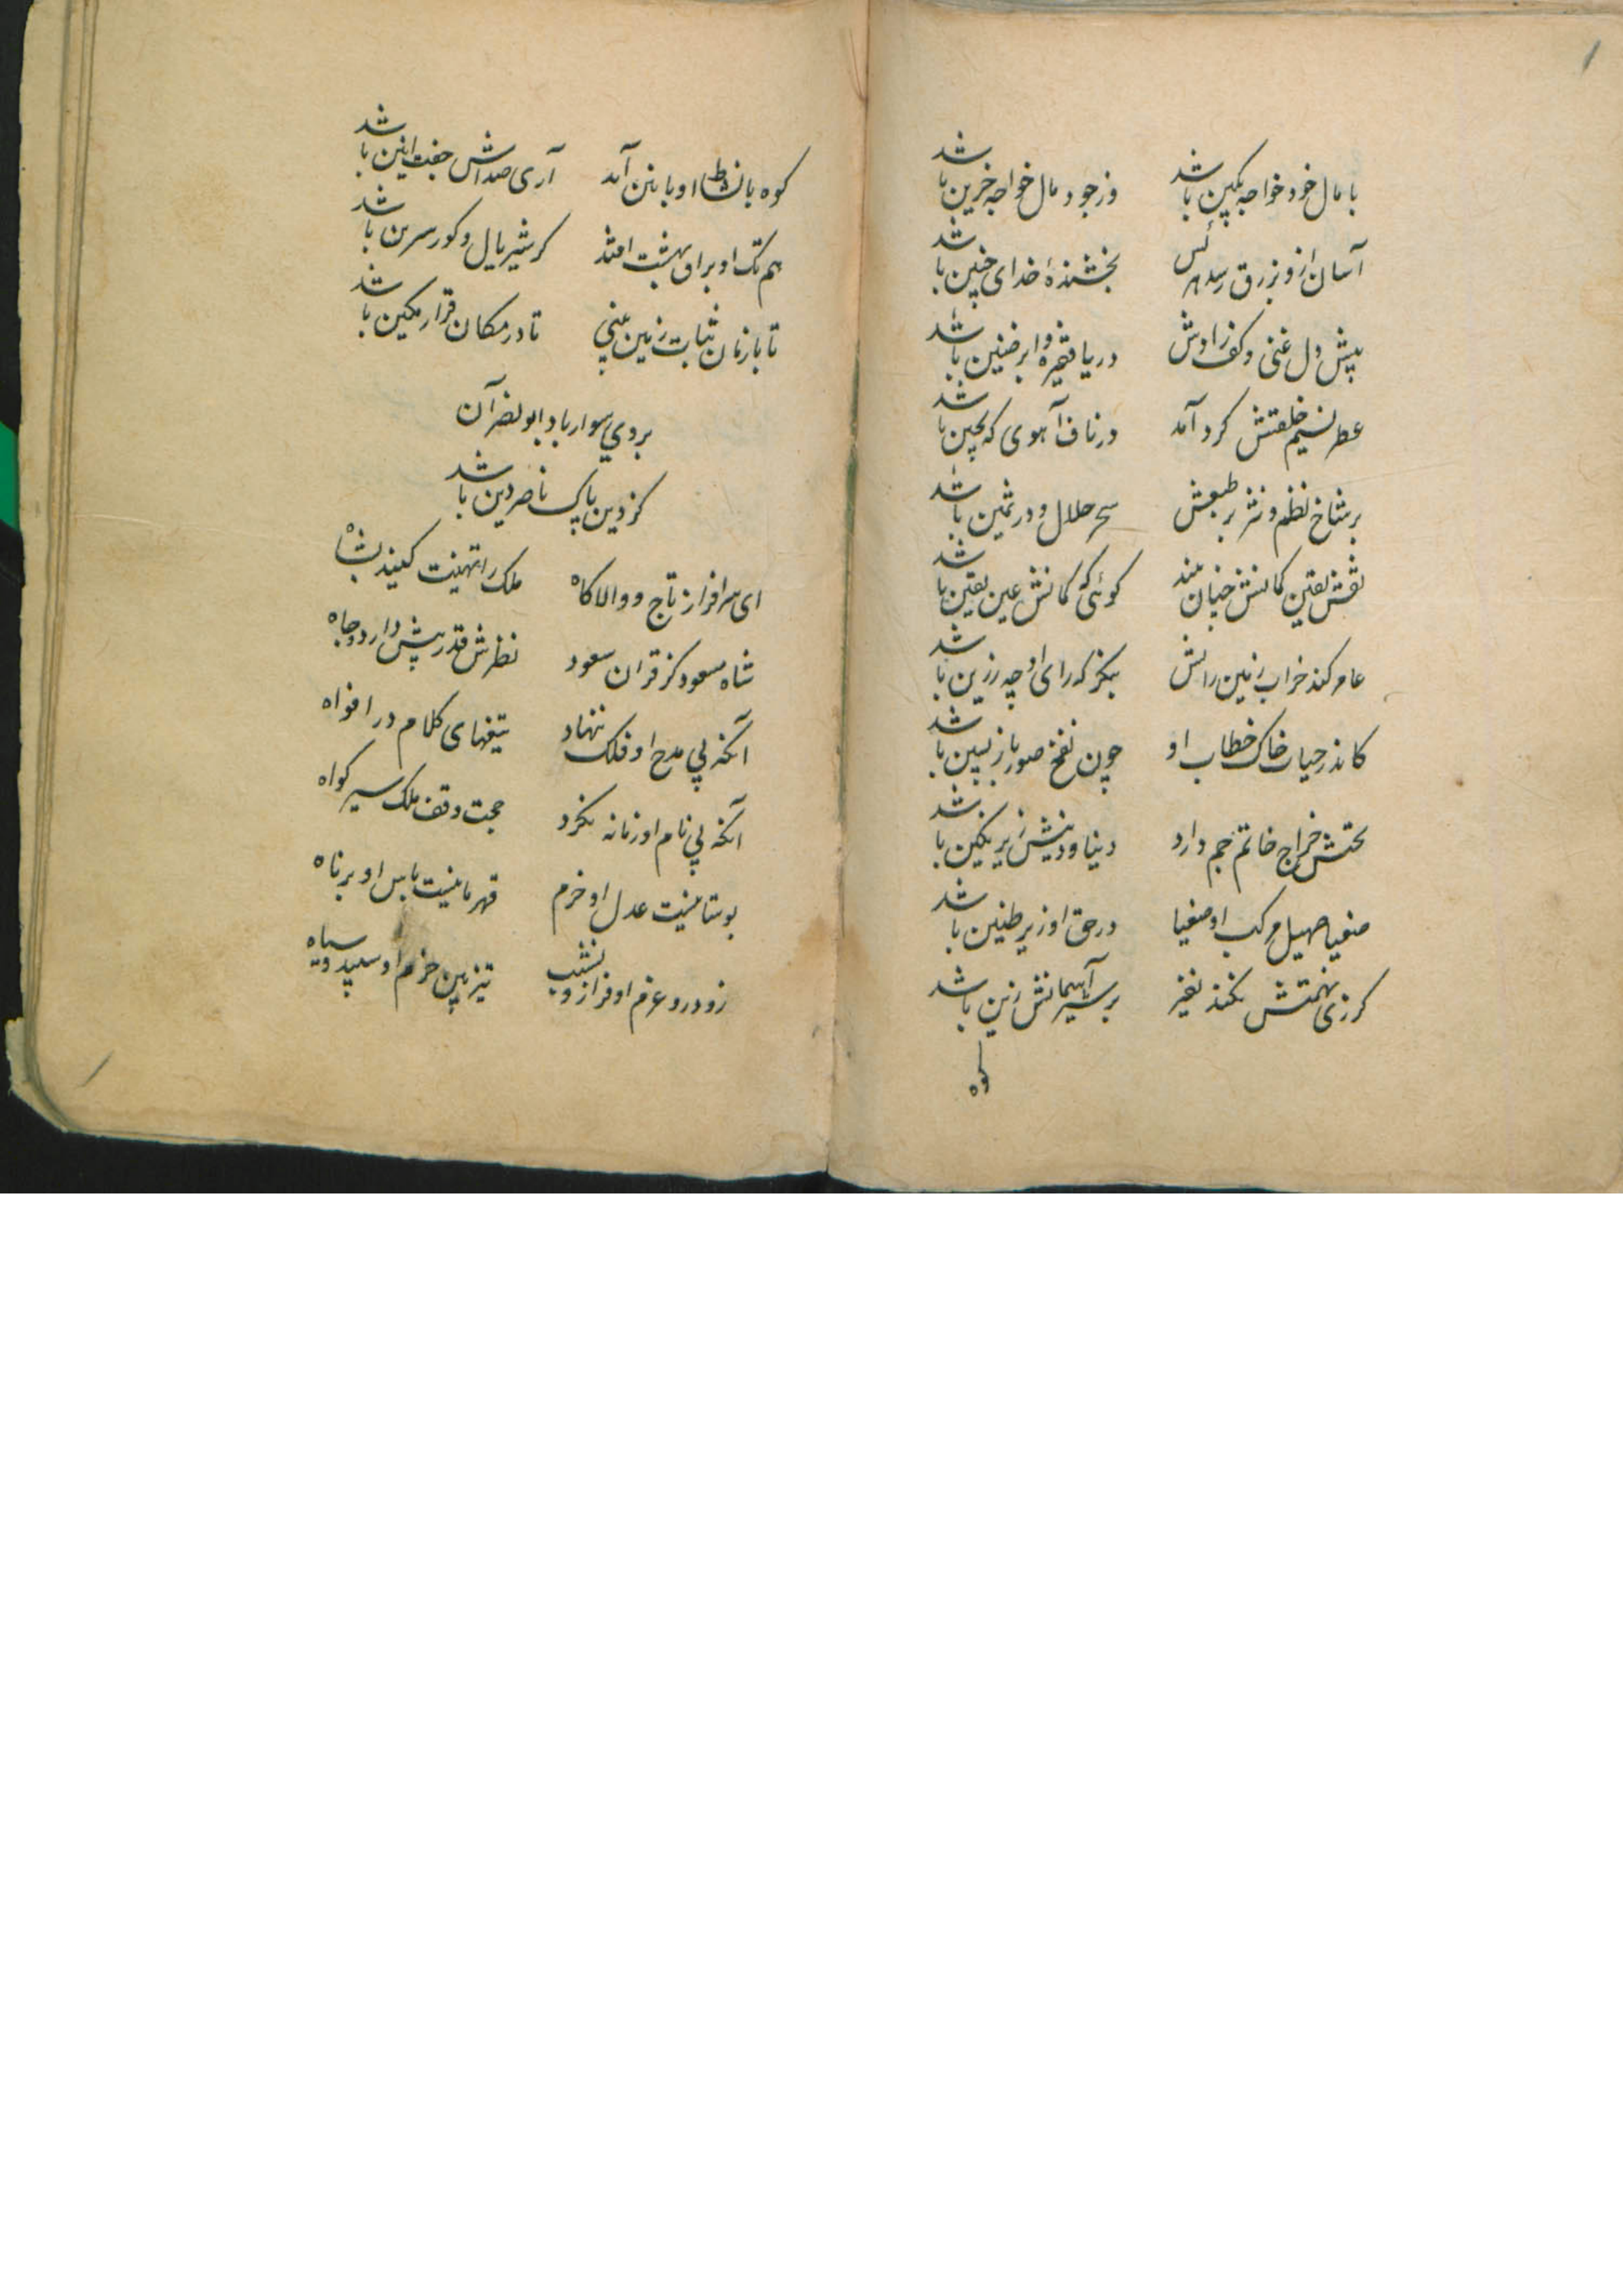 با مال خود خواجه بکین باشد وز جود مال خواجه خزین باشد
آسان ازو بزرق رسد هر کس بخشندهٔ خدای چنین باشد
پیش دل غنی و کف رادش دریا فقیره و ابر ضنین باشد
عطر نسیم خلقتش کرد آمد در ناف آهوی که بچین باشد
بر شاخ نظم و نثر بر طبعش سحر حلال و در ثمین باشد
نقش یقین کمانش چنان بیند کوئی که کمانش عین یقین باشد
عامر کند خراب زمین رایش بنکر که رای او چه رزین باشد
کاندر حیات خاک خطاب او چون نفخ صور باز پسین باشد
بختش خراج خاتم جم دارد دنیا و دینش زیر نکین باشد
صغیا صهیل مرکب او صغیا در حق او زیر طنین باشد
کر زی نهمتش بکند نفیر بر سیر آسمانش زین باشد
کوه
کوه با نشاط او با بنین آمد آری صداش جفت انین باشد
هم تک او براق بهشت افتد کر شیر یال و کور سرین باشد
تا با زمان ثبات زمین بینی تا در مکان قرار مکین باشد
بر وی سوار باد ابو نصر آن
کز دین پاک ناصر دین باشد
ای سرافراز تاج و والا کاه ملک را تهنیت کنید بشاه
شاه مسعود کز قران سعود نظرش قدر پیش دارد و جاه
آنکه بی مدح او فلک ننهاد تیغهای کلام در افواه
آنکه بی نام او زمانه نکرد حجت وقف ملک سیر کواه
بوستانیست عدل او خرم قهرمانیست باس او برناه
زود رو عزم او فراز و نشیب تیز بین حزم او سپید و سیاه